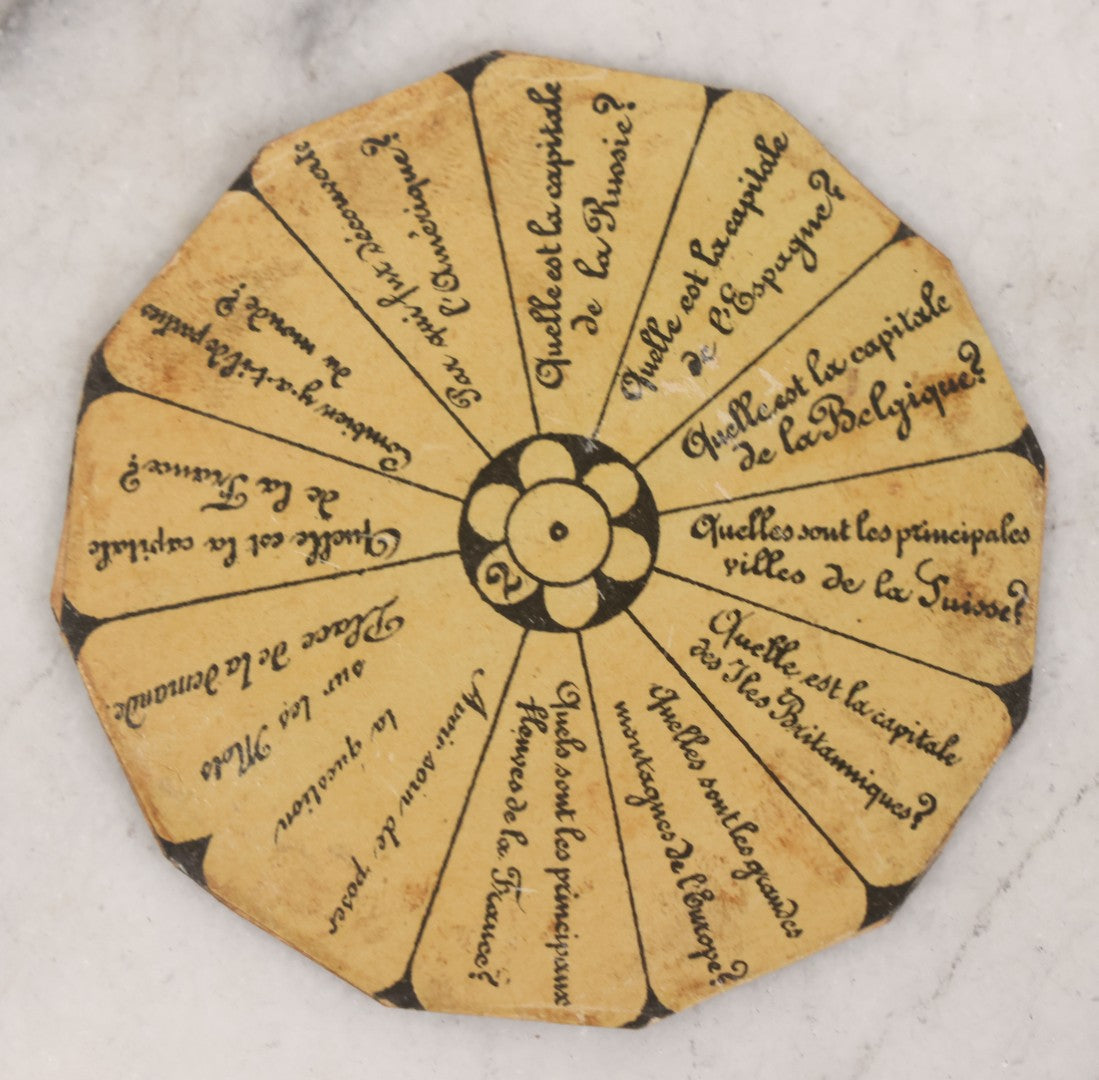 Quelle est la capitale
de la Russie?
Quelle est la capitale
de l'Espagne?
Quelle est la capitale
de la Belgique?
Quelles sont les principales
villes de la Suisse?
Quelle est la capitale
des Iles Britanniques?
Quelles sont les grandes
montagnes de l'Europe?
Quels sont les principaux
fleuves de la France?
Avoir soin de poser
la question
sur les Mots
Place de la demande.
Quelle est la capitale
de la France?
Combien y-a-t-il de parties
du monde?
Par qui fut découverte
l'Amérique?
2